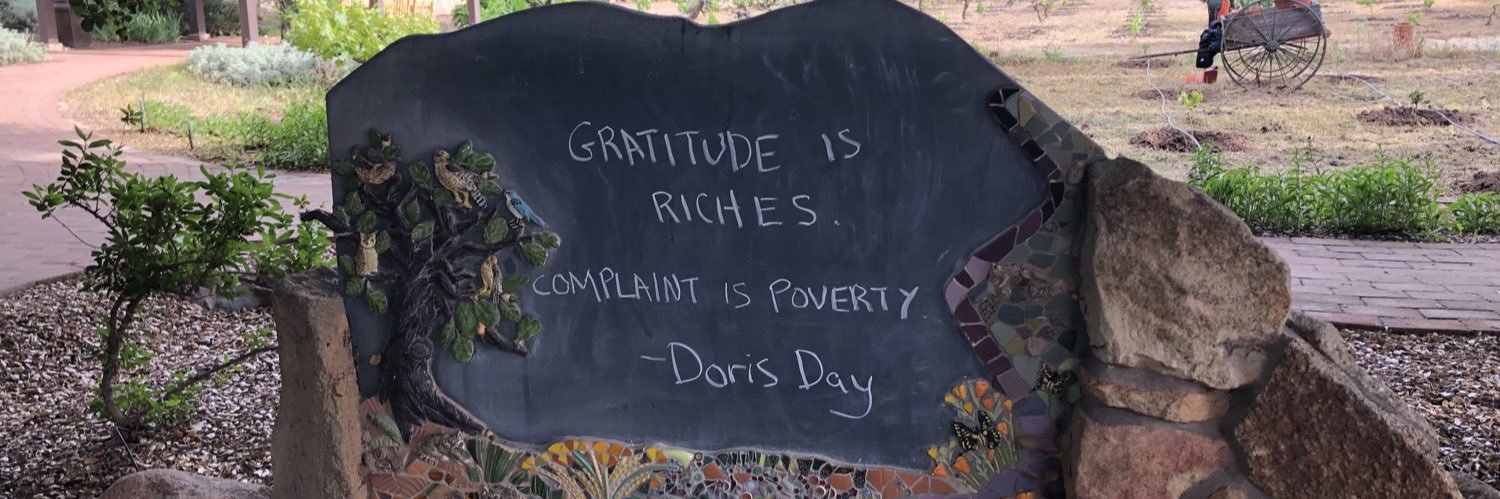 GRATITUDE IS
RICHES.
COMPLAINT IS POVERTY.
-Doris Day